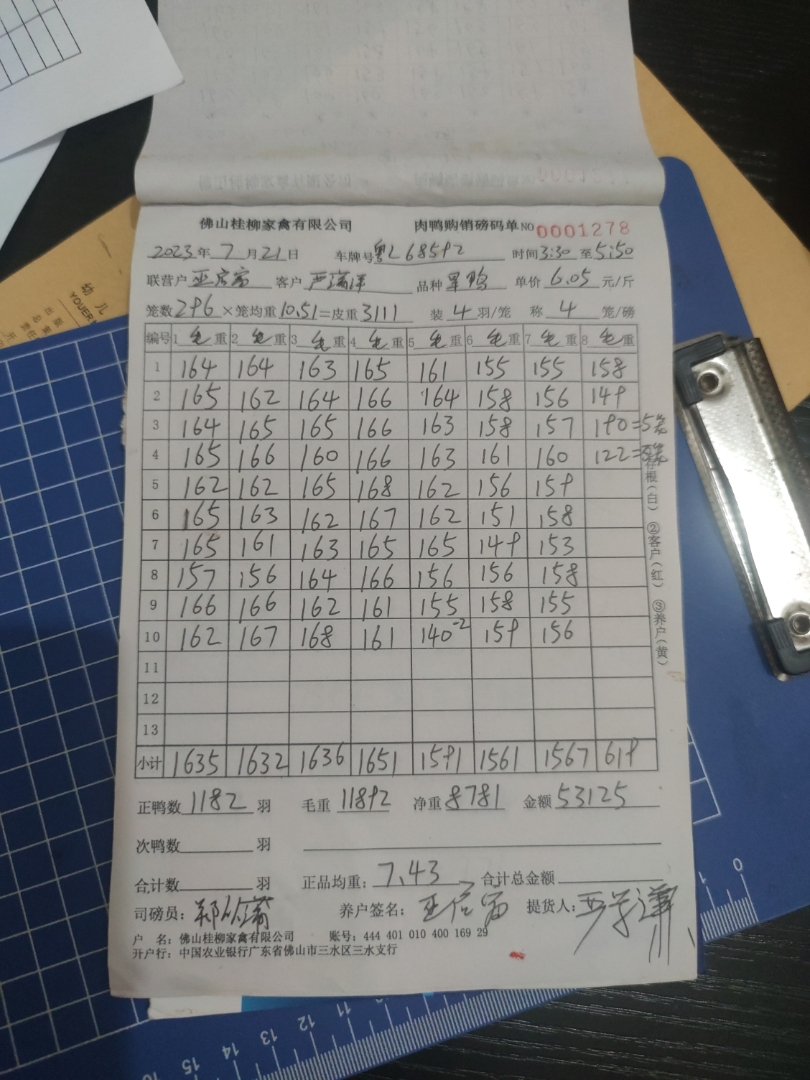 佛山桂柳家禽有限公司 肉鸭购销磅码单 NO 0001278
2023年 7 月 21 日 车牌号 粤L68592 时间 3:30 至 5:50
联营户 客户 品种 单价 6.05 元/斤
笼数 296 ×笼均重 10.51 =皮重 3111 装 4 羽/笼 称 4 笼/磅
编号 1 毛 重 2 毛 重 3 毛 重 4 毛 重 5 毛 重 6 毛 重 7 毛 重 8 毛 重
1 164 164 163 165 161 155 155 158
2 165 162 164 166 164 158 156 149
3 164 165 165 166 163 158 157 190=5笼
4 165 166 160 166 163 161 160 122=3笼
5 162 162 165 168 162 156 159
6 165 163 162 167 162 151 158
7 165 161 163 165 165 149 153
8 157 156 164 166 156 156 158
9 166 166 162 161 155 158 155
10 162 167 168 161 140-2 159 156
11
12
13
小计 1635 1632 1636 1651 1591 1561 1567 619
存根(白) ②客户(红) ③养户(黄)
正鸭数 1182 羽 毛重 11892 净重 8781 金额 53125
次鸭数 羽
合计数 羽 正品均重: 7.43 合计总金额
司磅员: 养户签名: 提货人:
户 名: 佛山桂柳家禽有限公司 账号: 444 401 010 400 169 29
开户行: 中国农业银行广东省佛山市三水区三水支行
幼 儿
0 8 9 10 11 12 13 14 15 16